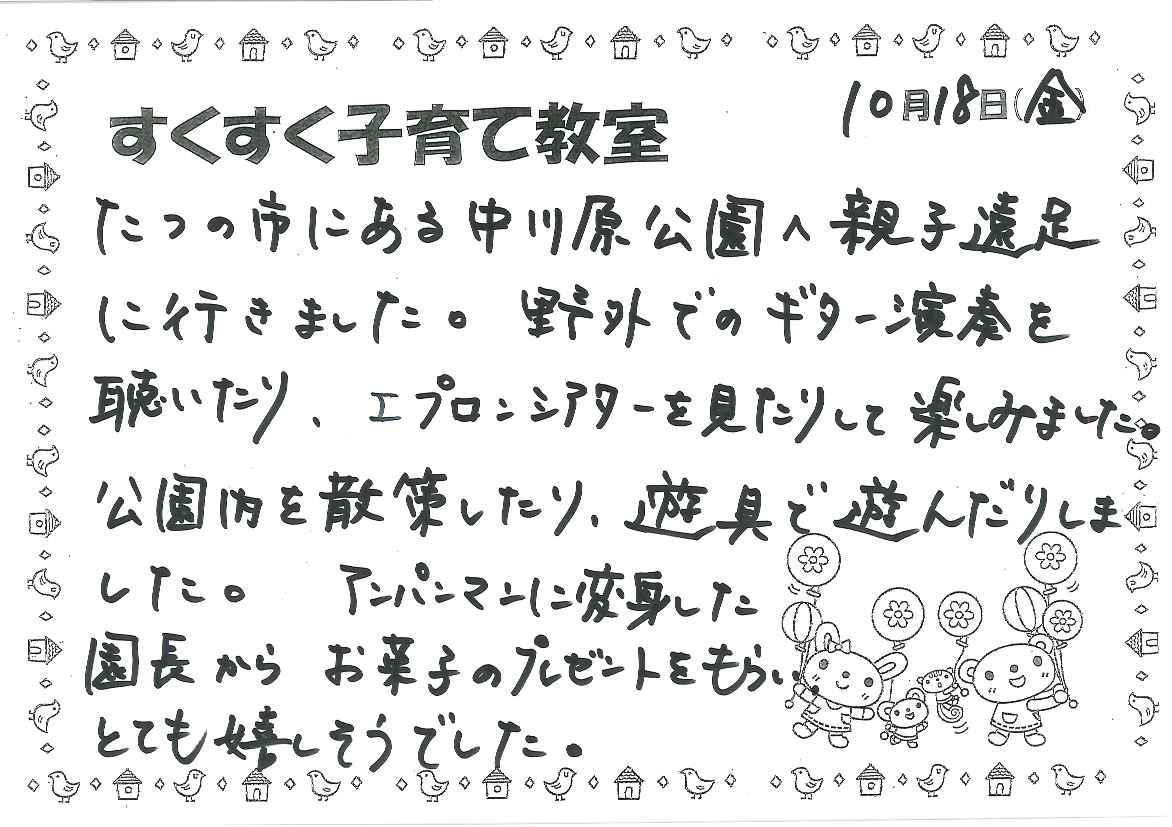 10月18日(金)
すくすく子育て教室
たつの市にある中川原公園へ親子遠足
に行きました。野外でのギター演奏を
聴いたり、エプロンシアターを見たりして楽しみました。
公園内を散策したり、遊具で遊んだりしま
した。 アンパンマンに変身した
園長から お菓子のプレゼントをもらい、
とても嬉しそうでした。